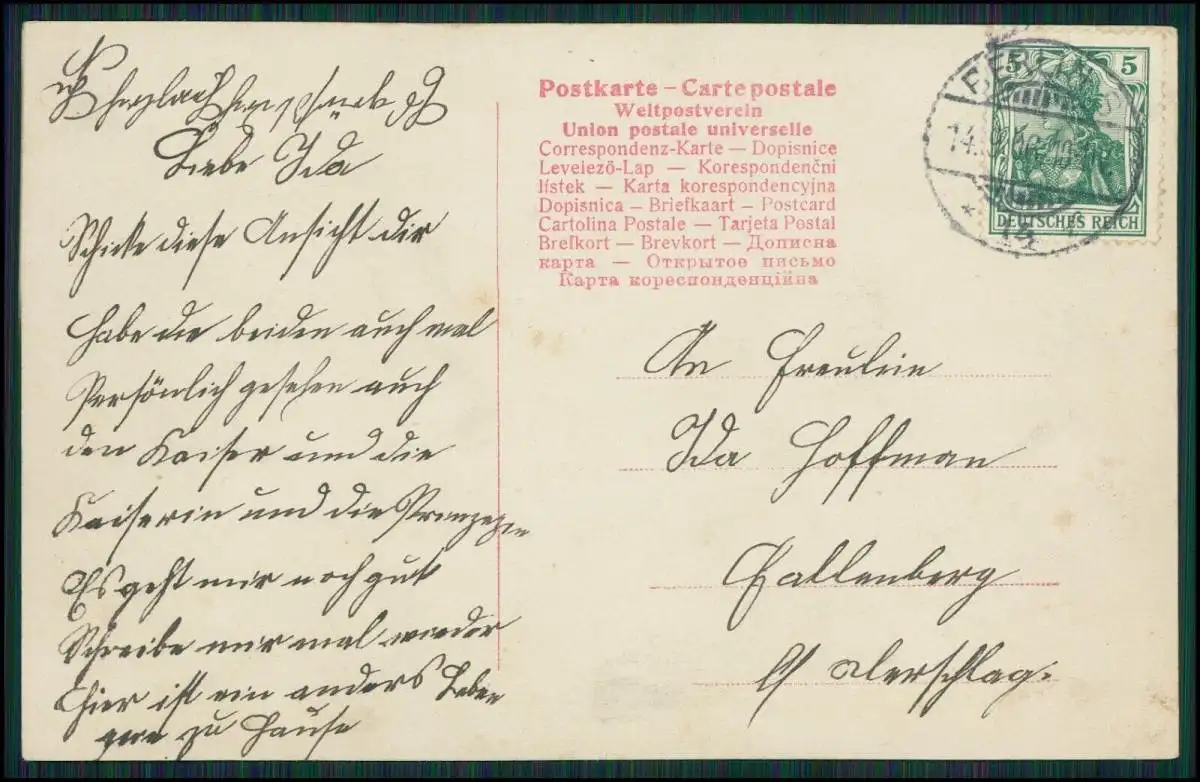 Liebe Ida
Schicke diese Ansicht dir
habe die beiden auch mal
Persönlich gesehen auch
den Kaiser und die
Kaiserin und die
Es geht mir noch gut
Schreibe mir mal wieder
hier ist ein anders Leben
zu Hause
Postkarte – Carte postale
Weltpostverein
Union postale universelle
Correspondenz-Karte — Dopisnice
Levelező-Lap — Korespondenčni
lístek — Karta korespondencyjna
Dopisnica — Briefkaart — Postcard
Cartolina Postale — Tarjeta Postal
Brefkort — Brevkort — Дописна
карта — Открытое письмо
Карта кореспонденційна
5 5
DEUTSCHES REICH
BERLIN
An Freulein
Ida Hoffman
Kallenberg
Derschlag.